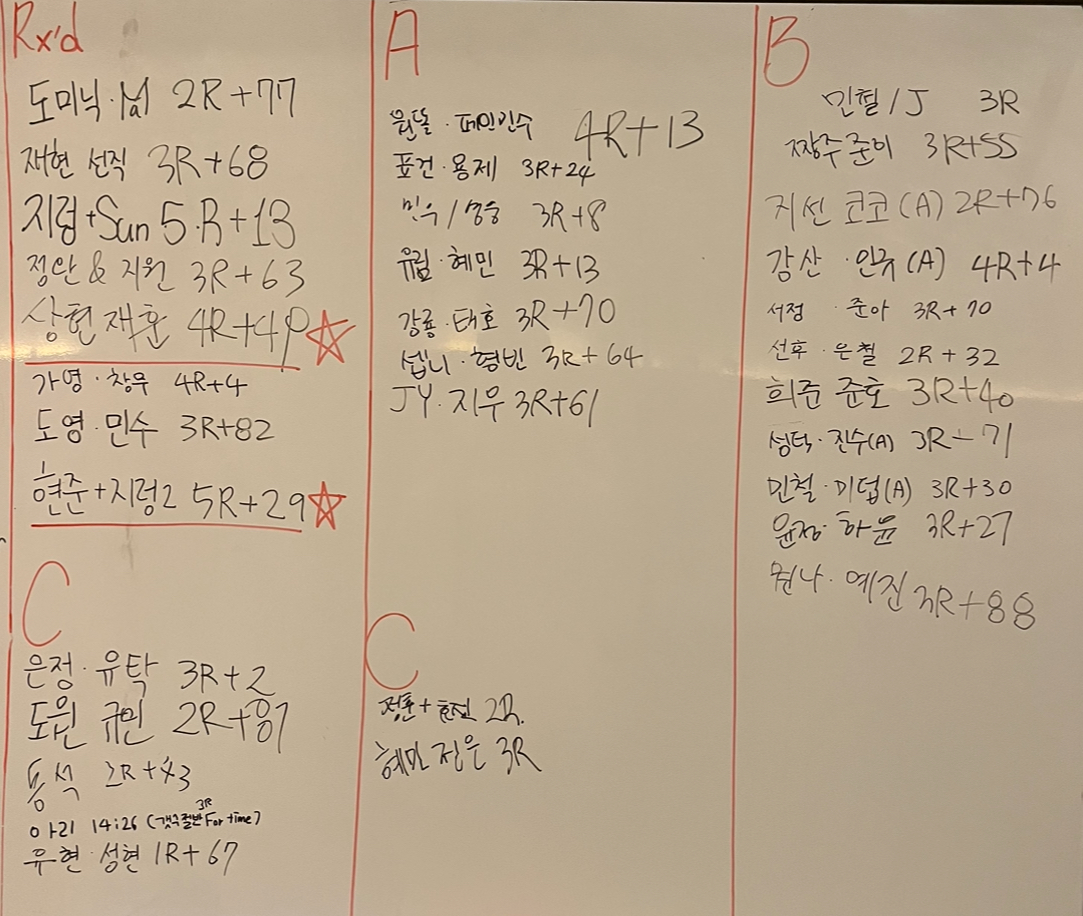 Rx'd
도미닉·Mal 2R+77
재현 선직 3R+68
지령+Sun 5.R+13
정란 & 지원 3R+63
상현 재훈 4R+49
가영·창우 4R+4
도영·민수 3R+82
현준+지령2 5R+29
C
은정·유탁 3R+2
도원 규민 2R+87
동석 2R+43
아리 14:26 (갯수절반 3R For time)
유현·성현 1R+67
A
4R+13
표건·용제 3R+24
민우/영승 3R+8
유림·혜민 3R+13
강룡·태호 3R+70
셉니·형빈 3R+64
JY·지우 3R+61
C
정훈+ 2R.
혜민 진은 3R
B
민철/J 3R
짱수준이 3R+55
지선 코코(A) 2R+76
강산·인규(A) 4R+4
서정·준아 3R+70
선후·은철 2R+32
희준 준호 3R+40
성탁·진수(A) 3R-71
민철·미덥(A) 3R+30
윤정·하윤 3R+27
예진 3R+88